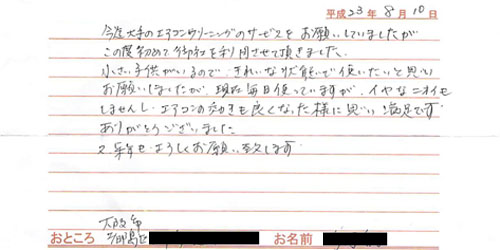 平成23年8月10日
今迄大手のエアコンクリーニングのサービスをお願いしていましたが
この度初めて御社を利用させて頂きました。
小さい子供がいるので、きれいな状態で使いたいと思い
お願いしましたが、現在毎日使っていますが、イヤなニオイも
しませんし、エアコンの効きも良くなった様に思い満足です
ありがとうございました
又来年もよろしくお願い致します
大阪市
都島区
おところ お名前